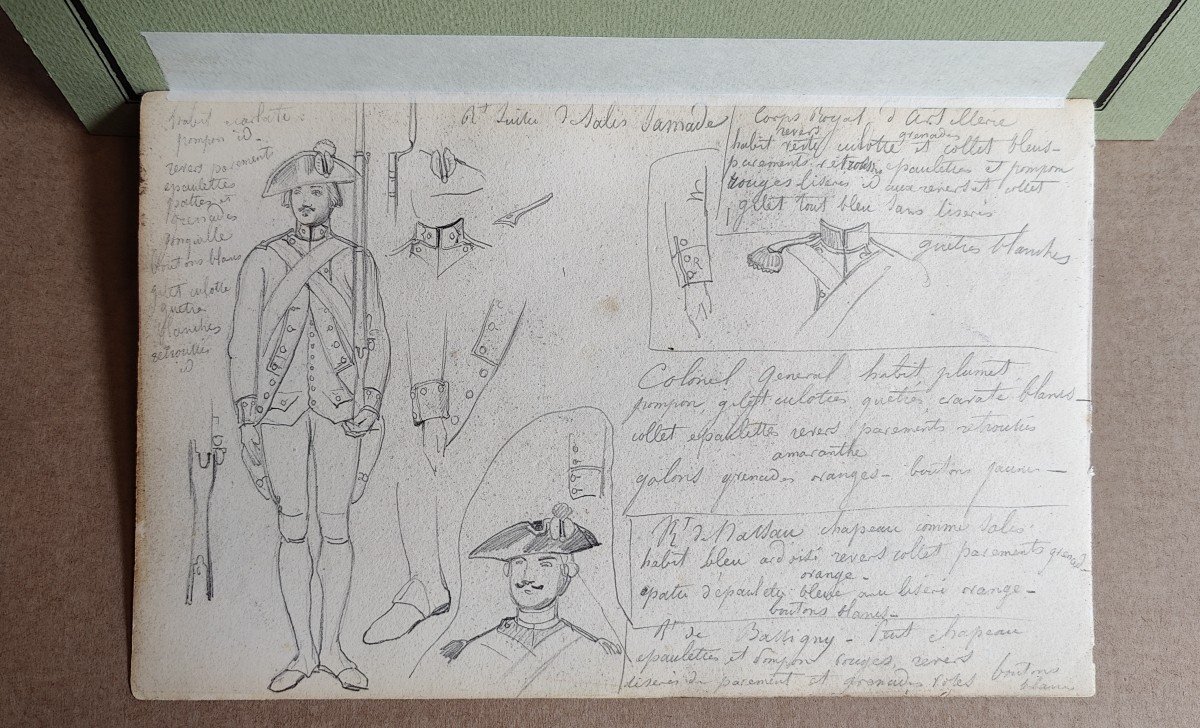 habit écarlate
pompon id
revers parement
epaulettes
pattes et
grenades
jonquille
boutons blancs
gilet culotte
guetre
blanches
retroussis
id
Rt Suisse d Salis Samade
Corps Royal d'Artillerie
revers grenades
habit veste culotte et collet bleus
parements retroussis epaulettes et pompon
rouges liserés id aux revers et collet
gilet tout bleu sans liserés
guetres blanches
Colonel General habit plumet
pompon gilet culottes guêtres cravate blancs
collet epaulettes revers parements retroussis
amaranthe
galons grenades oranges - boutons jaunes -
Rt de Nassau chapeau comme Salis
habit bleu ardoisé revers collet parements grenad.
orange -
patte d'épaulette bleue au liseré orange -
boutons blancs -
Rt de Bassigny - Petit chapeau
epaulettes et pompon rouges revers
liserés de parement et grenades roses boutons
blancs